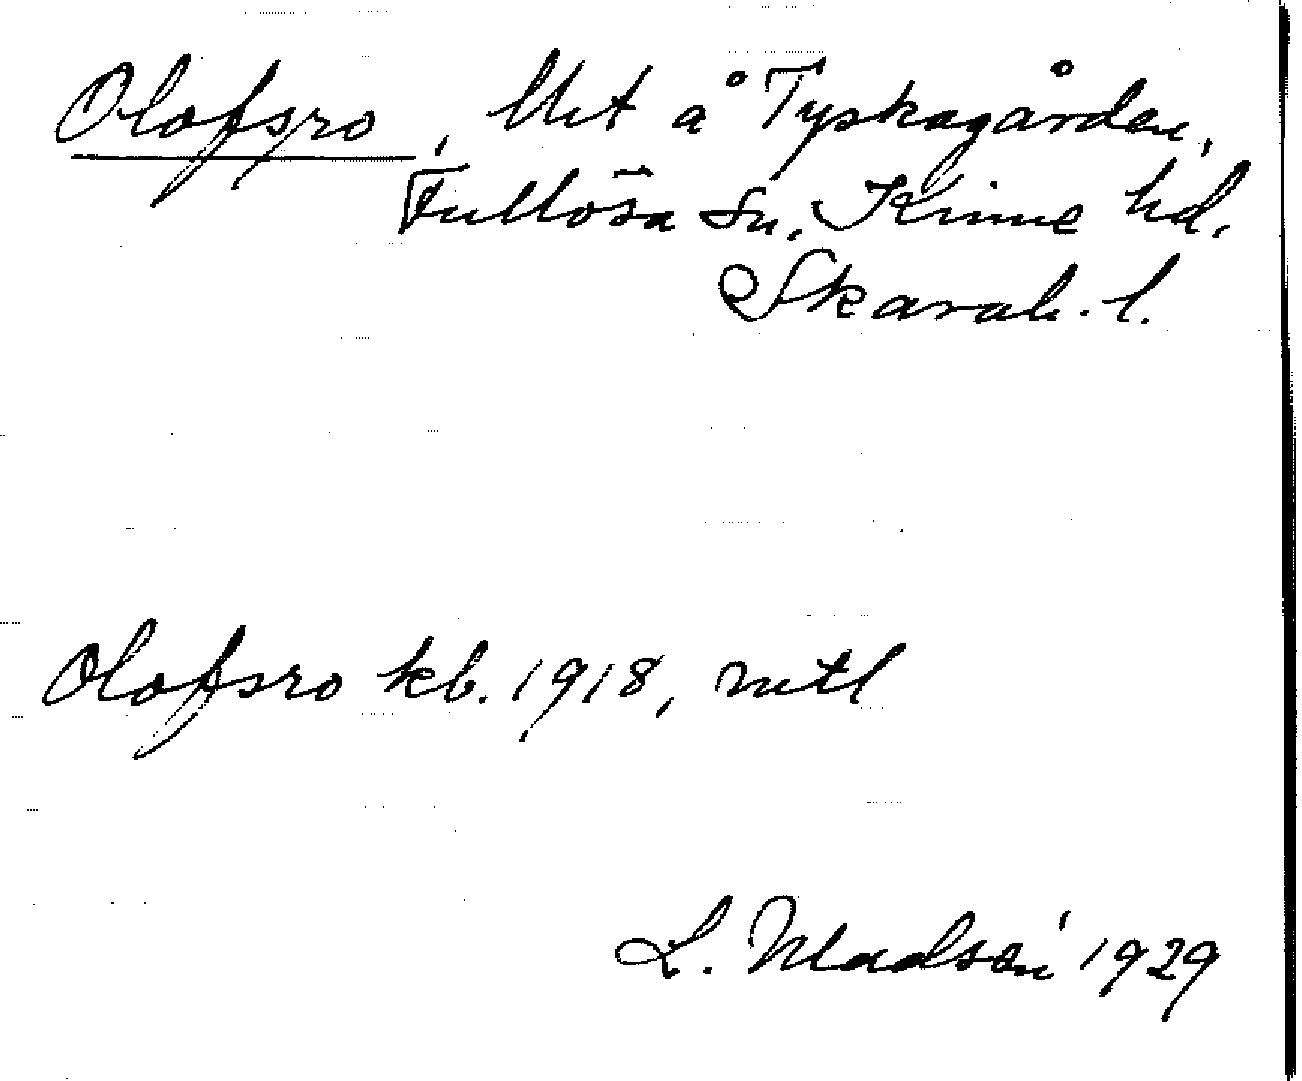 Olofsro, lht å Tyskagården,
Fullösa sn, Kinne hd.
Skarab. l.
Olofsro kb. 1918, mtl
L. Madsén 1929